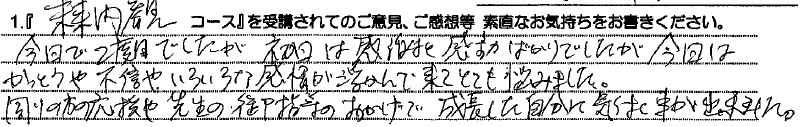 1.『 森内観 コース』を受講されてのご意見、ご感想等 素直なお気持ちをお書きください。
今回で2度目でしたが 初回は感謝と感動ばかりでしたが 今回は
かっとうや不信やいろいろな感情が浮かんで来てとても悩みました。
周りの方の応援や先生の 指導のおかげで 成長した自分に気付く事が出来ました。